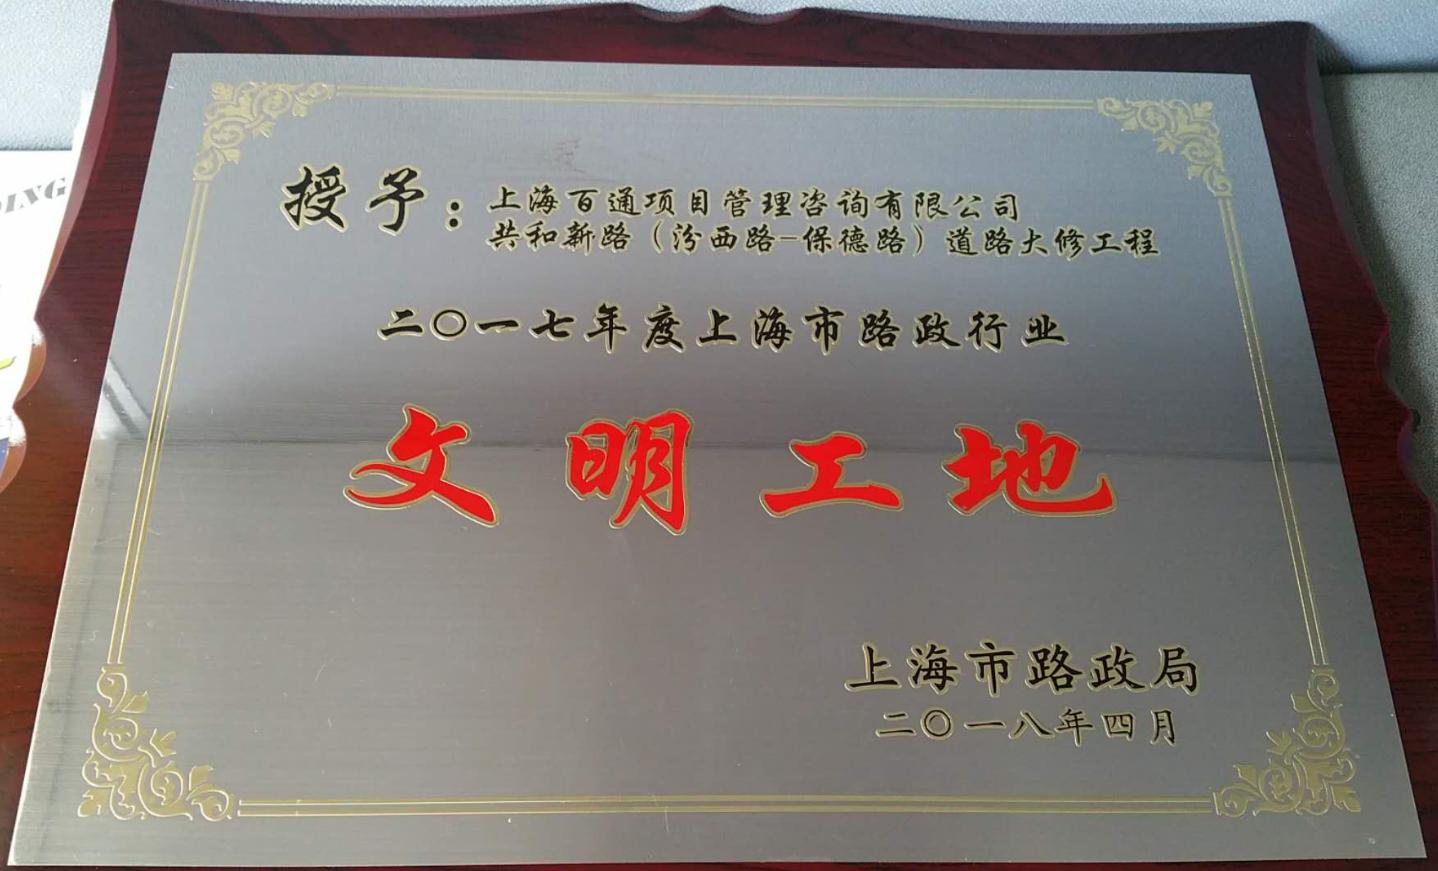 授予：上海百通项目管理咨询有限公司
共和新路（汾西路-保德路）道路大修工程
二〇一七年度上海市路政行业
文明工地
上海市路政局
二〇一八年四月